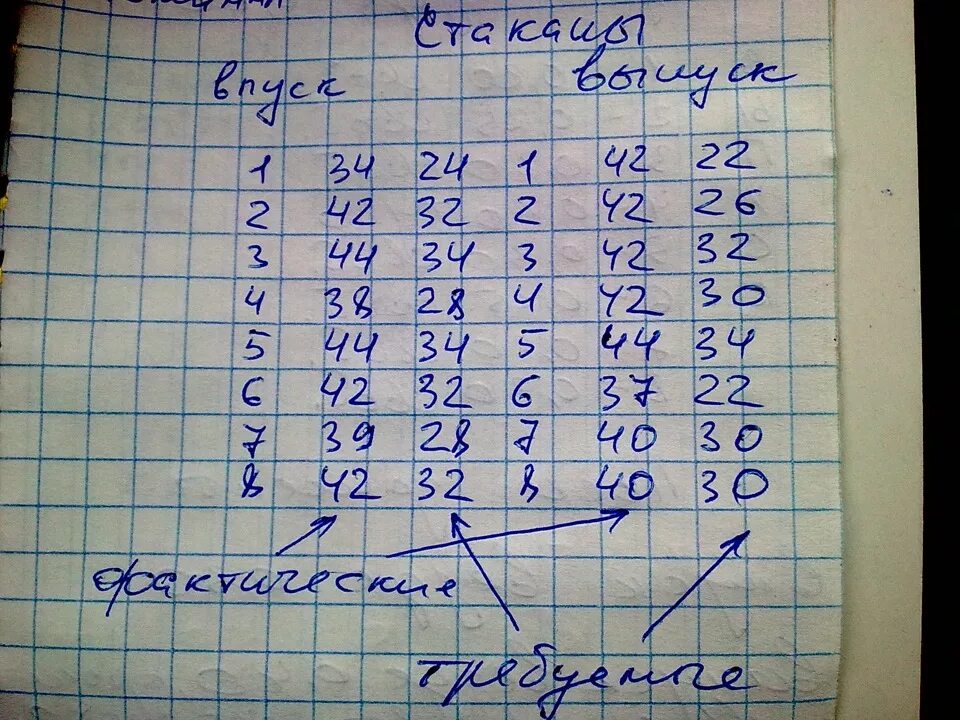 Стаканы
впуск выпуск
1 34 24 1 42 22
2 42 32 2 42 26
3 44 34 3 42 32
4 38 28 4 42 30
5 44 34 5 44 34
6 42 32 6 37 22
7 39 28 7 40 30
8 42 32 8 40 30
фактические
требуемые